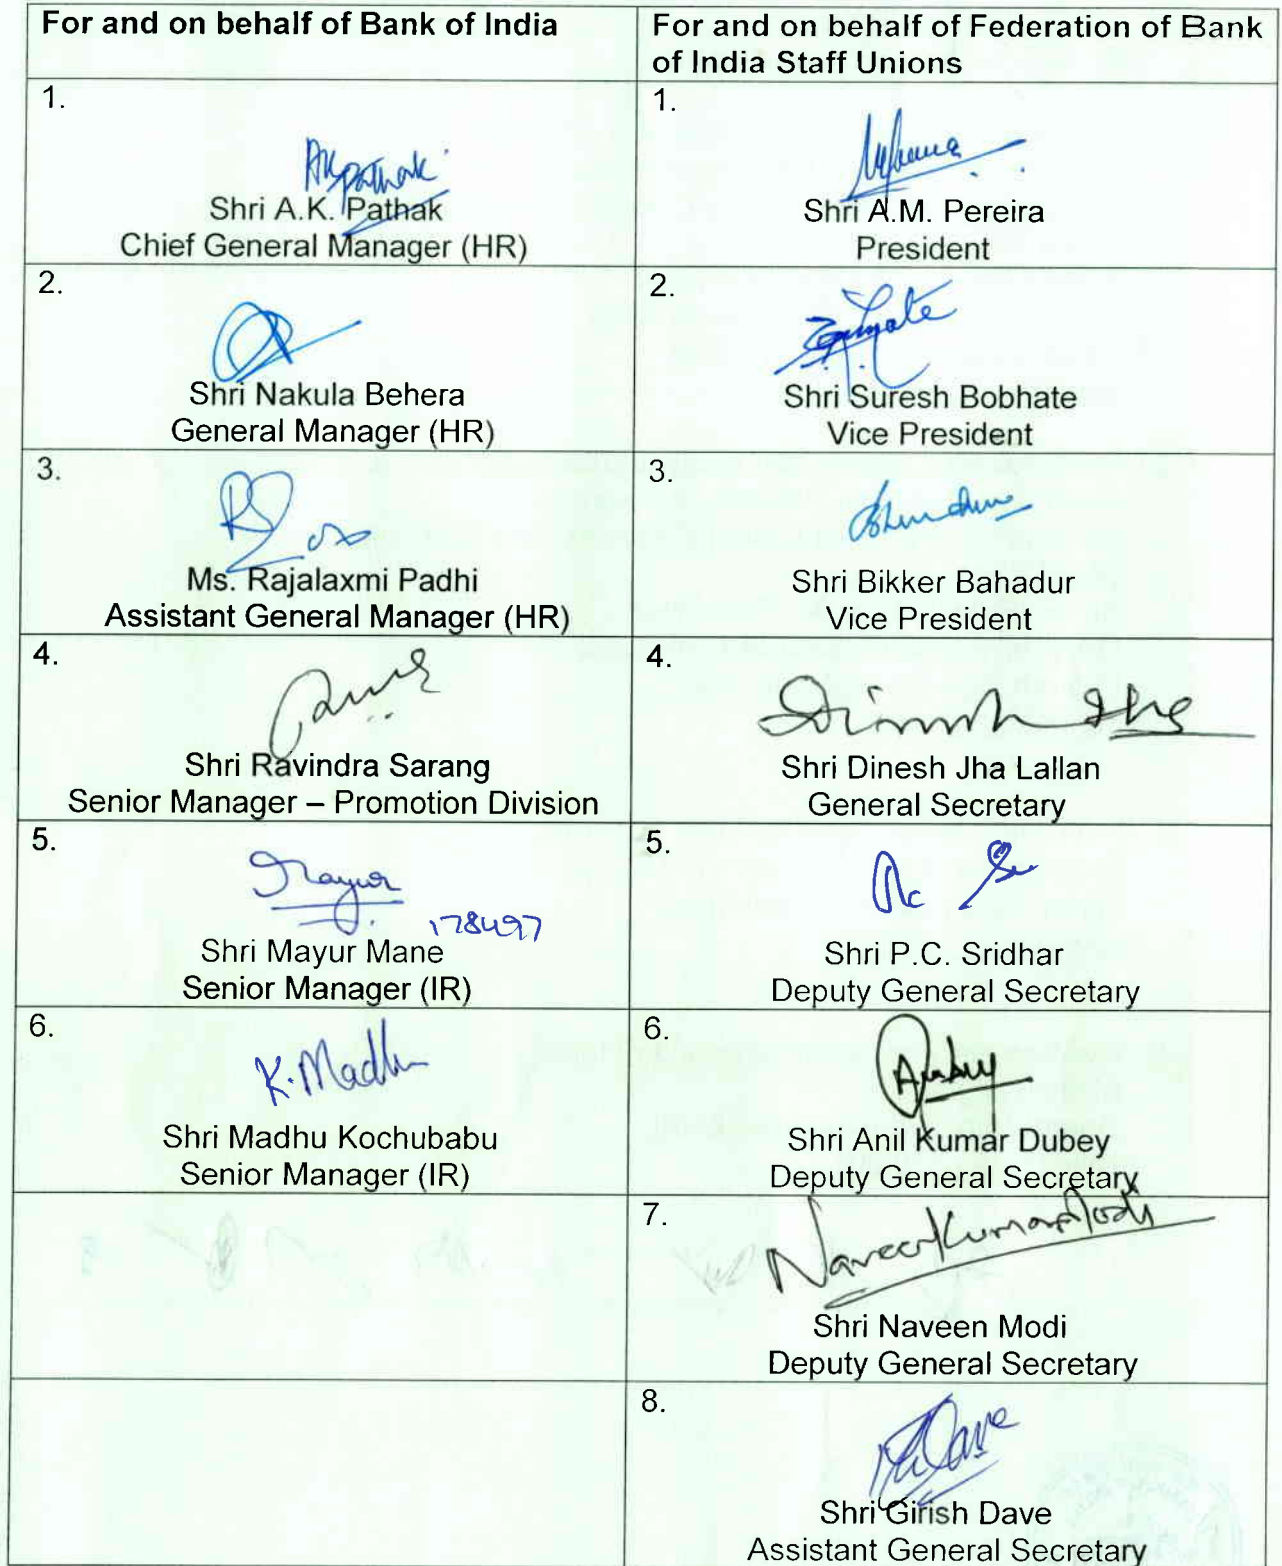 For and on behalf of Bank of India
For and on behalf of Federation of Bank
of India Staff Unions
1.
AKPathak
Shri A.K. Pathak
Chief General Manager (HR)
1.
Shri A.M. Pereira
President
2.
Shri Nakula Behera
General Manager (HR)
2.
Shri Suresh Bobhate
Vice President
3.
Ms. Rajalaxmi Padhi
Assistant General Manager (HR)
3.
Shri Bikker Bahadur
Vice President
4.
Shri Ravindra Sarang
Senior Manager – Promotion Division
4.
Dinesh Jha
Shri Dinesh Jha Lallan
General Secretary
5.
Mayur
178497
Shri Mayur Mane
Senior Manager (IR)
5.
Shri P.C. Sridhar
Deputy General Secretary
6.
K.Madhu
Shri Madhu Kochubabu
Senior Manager (IR)
6.
Shri Anil Kumar Dubey
Deputy General Secretary
7.
Naveen Kumar Modi
Shri Naveen Modi
Deputy General Secretary
8.
Shri Girish Dave
Assistant General Secretary